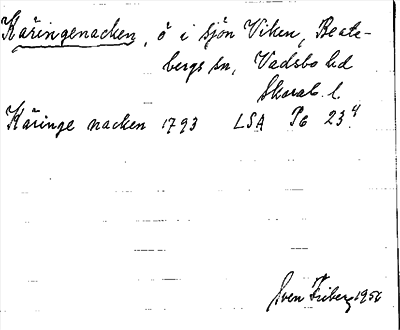 Käringenacken, ö i sjön Viken, Beate-
bergs sn, Vadsbo hd
Skarab. l.
Käringe nacken 1793 LSA P6 23⁴
Sven Friberg 1950